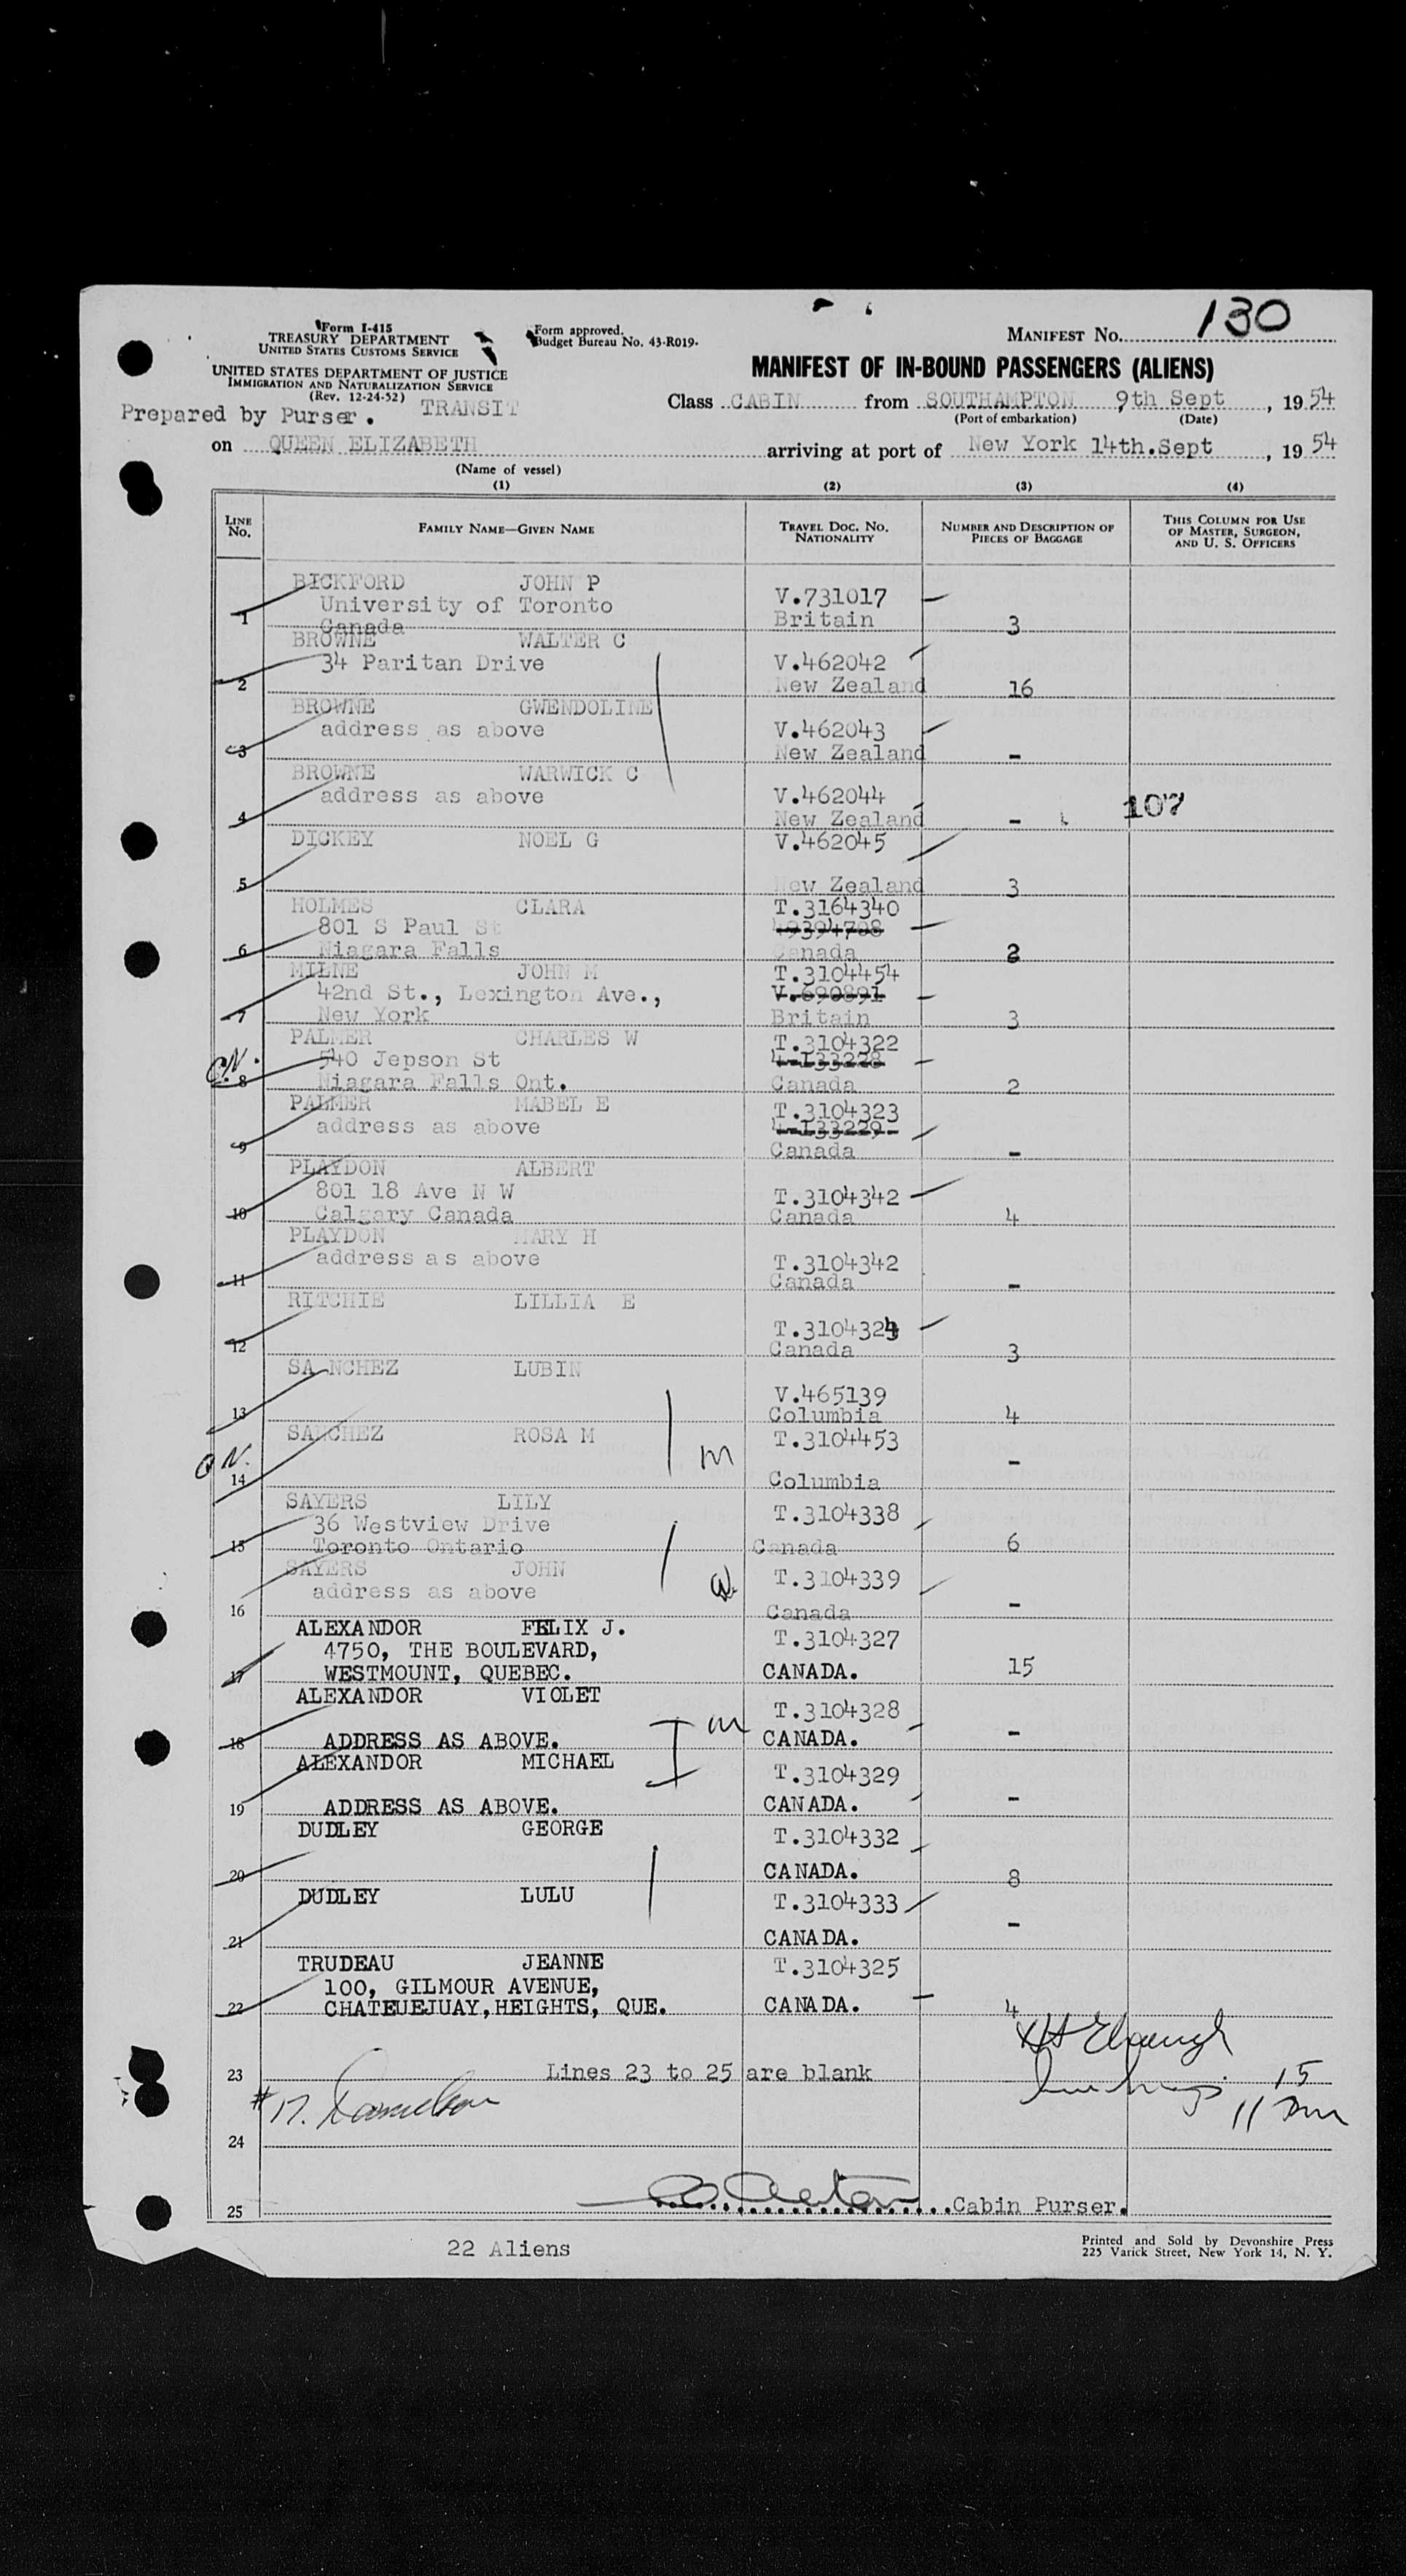 130
Form I-415
TREASURY DEPARTMENT
UNITED STATES CUSTOMS SERVICE
Form approved.
Budget Bureau No. 43-R019.
MANIFEST No.
UNITED STATES DEPARTMENT OF JUSTICE
IMMIGRATION AND NATURALIZATION SERVICE
(Rev. 12-24-52)
MANIFEST OF IN-BOUND PASSENGERS (ALIENS)
Prepared by Purser. TRANSIT
Class CABIN from SOUTHAMPTON 9th Sept, 1954
(Port of embarkation) (Date)
on QUEEN ELIZABETH arriving at port of New York 14th.Sept, 1954
(Name of vessel)
(1) (2) (3) (4)
LINE No. FAMILY NAME—GIVEN NAME TRAVEL DOC. NO. NATIONALITY NUMBER AND DESCRIPTION OF PIECES OF BAGGAGE THIS COLUMN FOR USE OF MASTER, SURGEON, AND U. S. OFFICERS
BICKFORD JOHN P
University of Toronto V.731017 —
1 Canada Britain 3
BROWNE WALTER C
34 Paritan Drive V.462042
2 New Zealand 16
BROWNE GWENDOLINE
address as above V.462043
3 New Zealand -
BROWNE WARWICK C
address as above V.462044
4 New Zealand - 107
DICKEY NOEL G V.462045
5 New Zealand 3
HOLMES CLARA T.3164340
801 S Paul St 49394708
6 Niagara Falls Canada 2
MILNE JOHN M T.3104454
42nd St., Lexington Ave., V.690891
7 New York Britain 3
PALMER CHARLES W T.3104322
C.N. 540 Jepson St 4-133228
8 Niagara Falls Ont. Canada 2
PALMER MABEL E T.3104323
address as above 4-133229
9 Canada -
PLAYDON ALBERT
801 18 Ave N W T.3104342
10 Calgary Canada Canada 4
PLAYDON MARY H
address as above T.3104342
11 Canada -
RITCHIE LILLIA E
T.3104324
12 Canada 3
SANCHEZ LUBIN
V.465139
13 Columbia 4
SANCHEZ ROSA M T.3104453
C.N. m -
14 Columbia
SAYERS LILY T.3104338
36 Westview Drive
15 Toronto Ontario Canada 6
SAYERS JOHN T.3104339
address as above
16 Canada -
ALEXANDOR FELIX J. T.3104327
4750, THE BOULEVARD,
17 WESTMOUNT, QUEBEC. CANADA. 15
ALEXANDOR VIOLET T.3104328
m
18 ADDRESS AS ABOVE. CANADA. -
ALEXANDOR MICHAEL T.3104329
19 ADDRESS AS ABOVE. CANADA. -
DUDLEY GEORGE T.3104332
20 CANADA. 8
DUDLEY LULU T.3104333
21 CANADA. -
TRUDEAU JEANNE T.3104325
100, GILMOUR AVENUE,
22 CHATEUEJUAY,HEIGHTS, QUE. CANADA. 4
23 Lines 23 to 25 are blank 15
#17.
24
25 Cabin Purser.
22 Aliens
Printed and Sold by Devonshire Press
225 Varick Street, New York 14, N. Y.